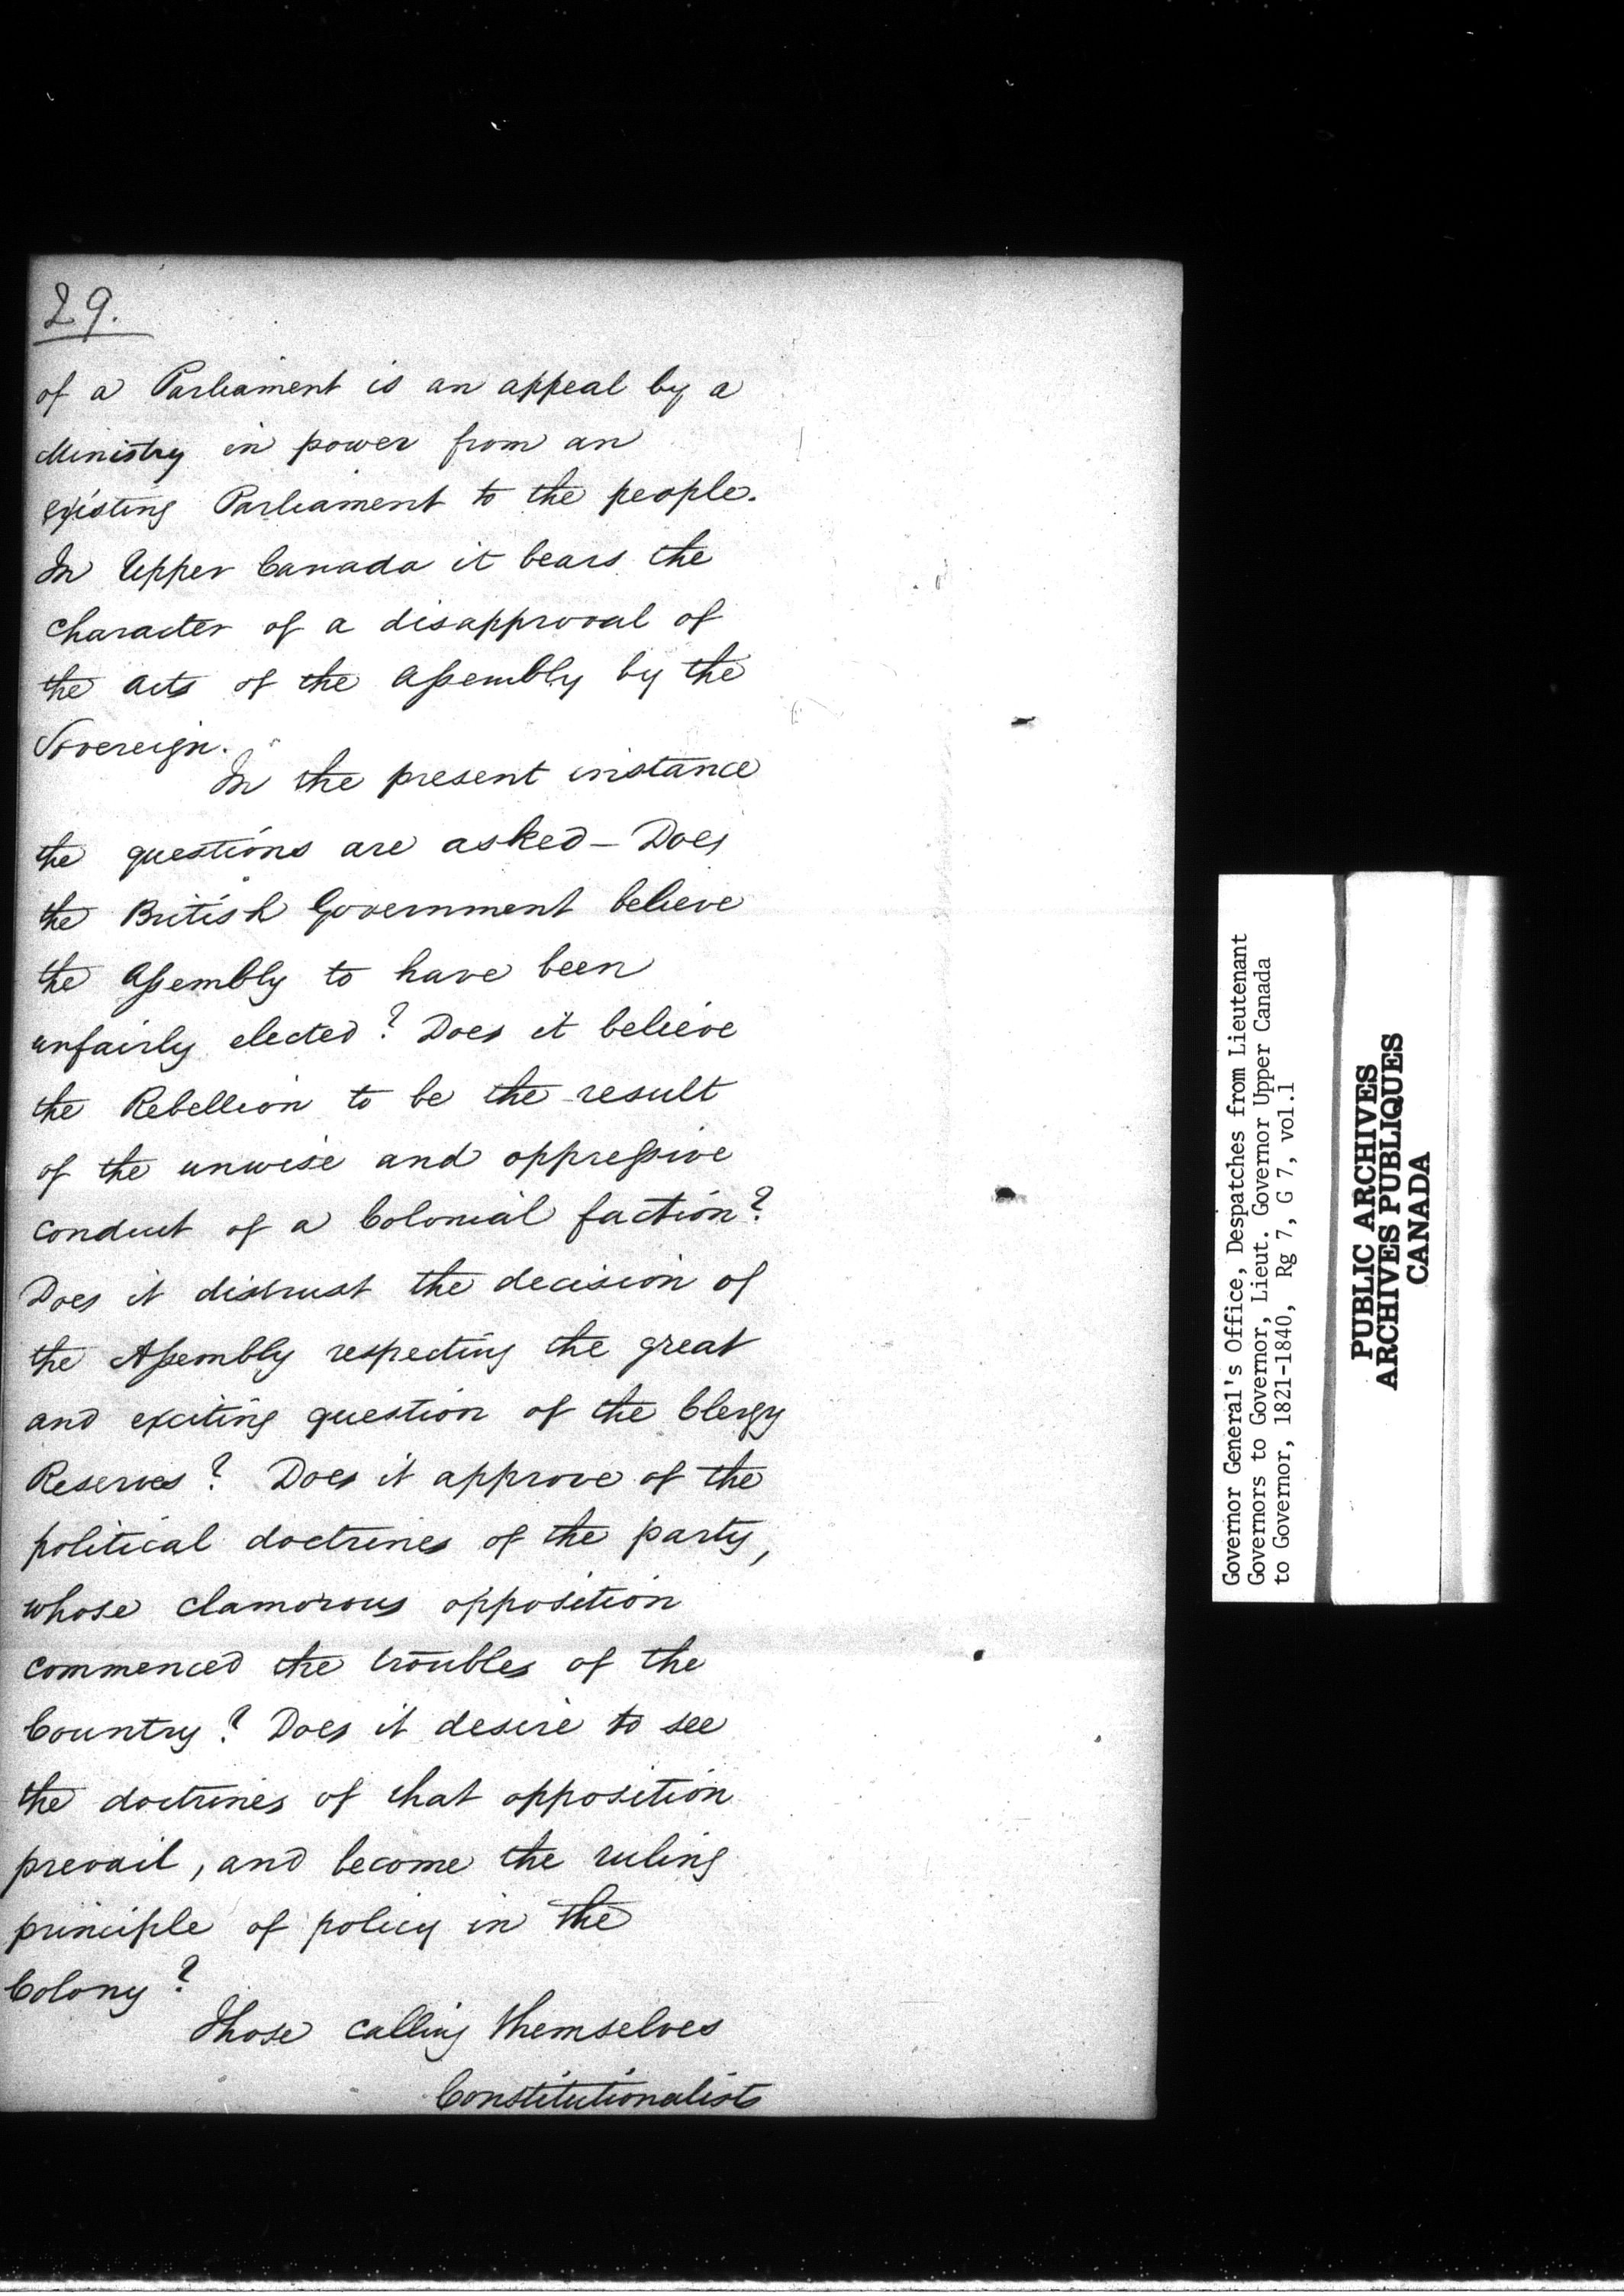 29.
of a Parliament is an appeal by a
Ministry in power from an
existing Parliament to the people.
In Upper Canada it bears the
character of a disapproval of
the acts of the Assembly by the
Sovereign.
In the present instance
the questions are asked – Does
the British Government believe
the Assembly to have been
unfairly elected? Does it believe
the Rebellion to be the result
of the unwise and oppressive
conduct of a Colonial faction?
Does it distrust the decision of
the Assembly respecting the great
and exciting question of the Clergy
Reserves? Does it approve of the
political doctrines of the party,
whose clamorous opposition
commenced the troubles of the
Country? Does it desire to see
the doctrines of that opposition
prevail, and become the ruling
principle of policy in the
Colony?
Those calling themselves
Constitutionalists
Governor General's Office, Despatches from Lieutenant
Governors to Governor, Lieut. Governor Upper Canada
to Governor, 1821-1840, Rg 7, G 7, vol.1
PUBLIC ARCHIVES
ARCHIVES PUBLIQUES
CANADA